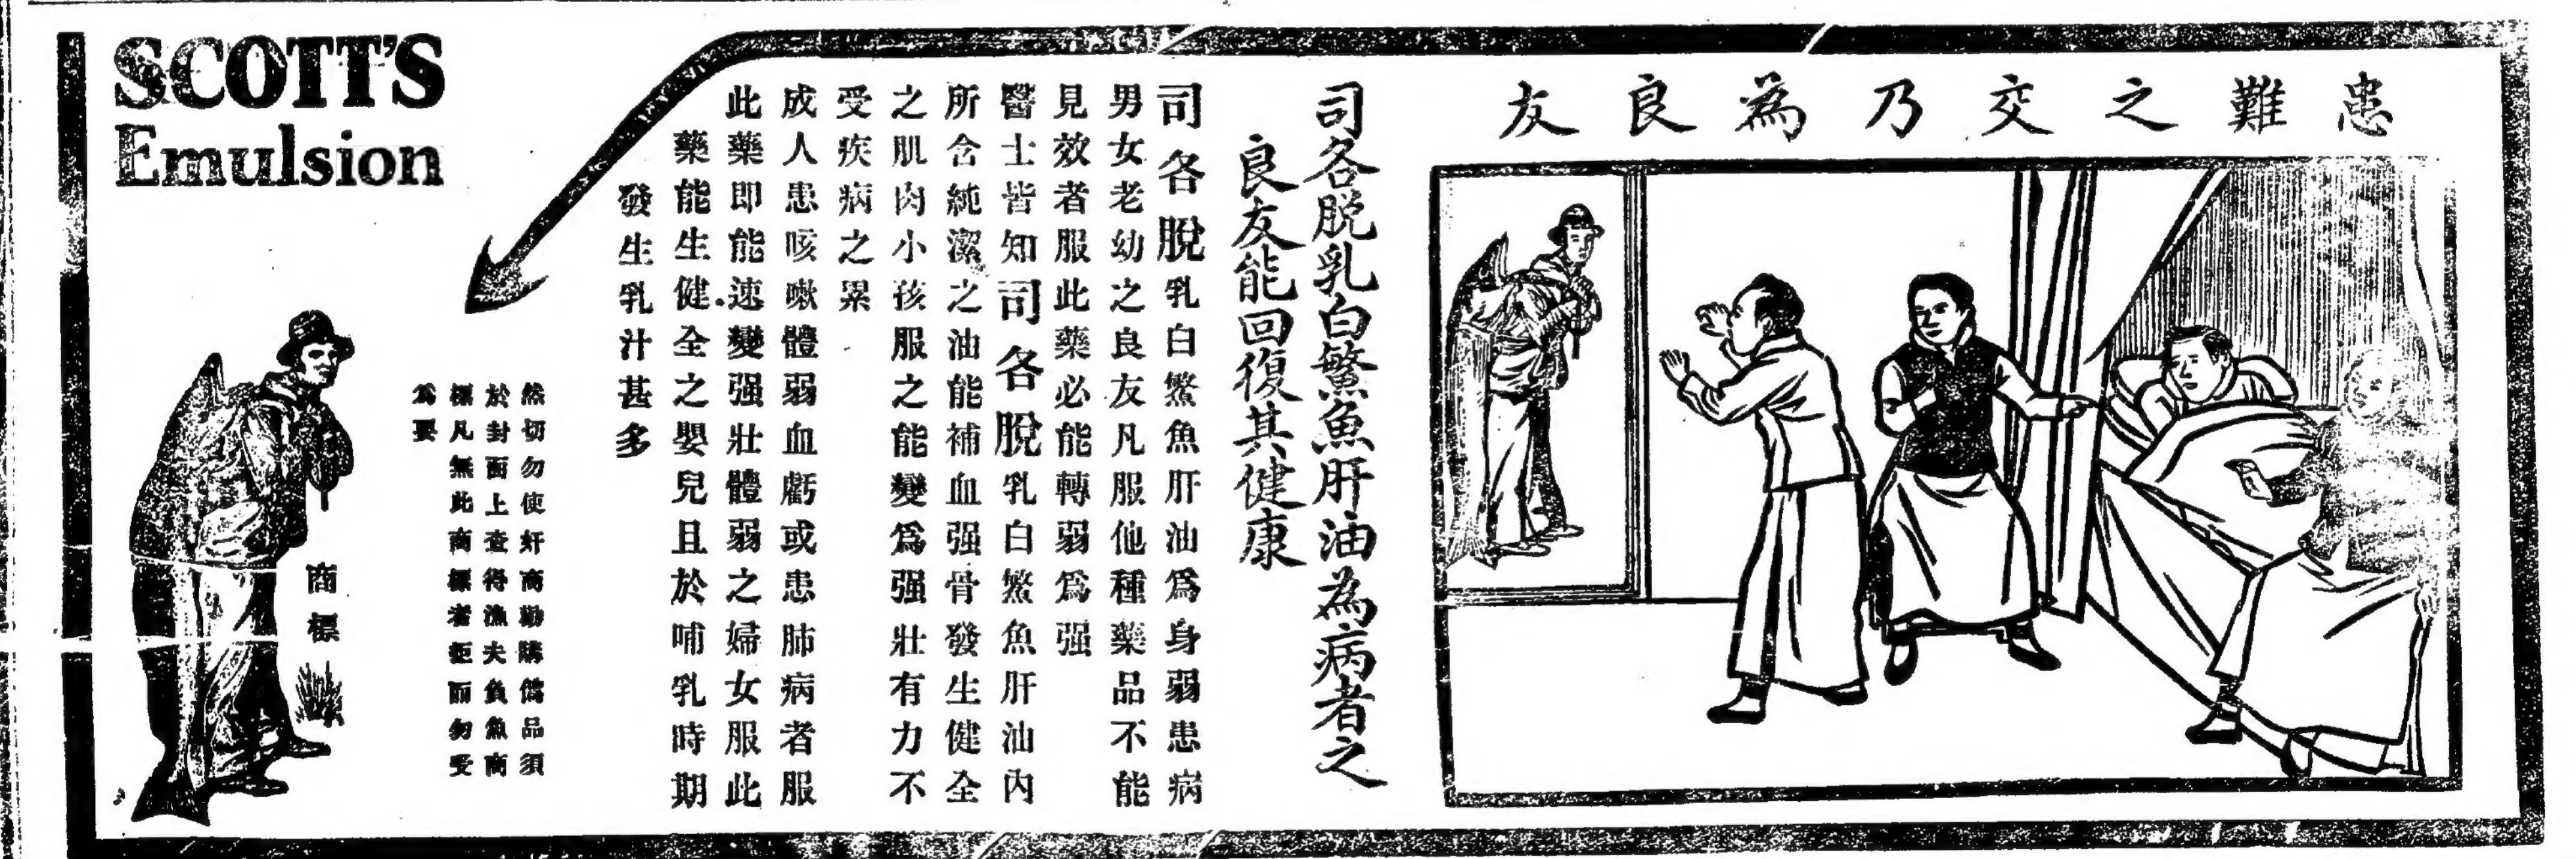 患難之交乃為良友
司各脫乳白鰵魚肝油為病者之
良友能回復其健康
司各脫乳白鰵魚肝油爲身弱患病
男女老幼之良友凡服他種藥品不能
見效者服此藥必能轉弱爲强
醫士皆知司各脫乳白鰵魚肝油內
所含純潔之油能補血强骨發生健全
之肌肉小孩服之能變爲强壯有力不
受疾病之累
成人患咳嗽體弱血虧或患肺病者服
此藥即能速變强壯體弱之婦女服此
藥能生健全之嬰兒且於哺乳時期
發生乳汁甚多
SCOTT'S
Emulsion
然切勿使奸商勸購僞品須
於封面上查得漁夫負魚商
標凡無此商標者拒而勿受
爲要
商標